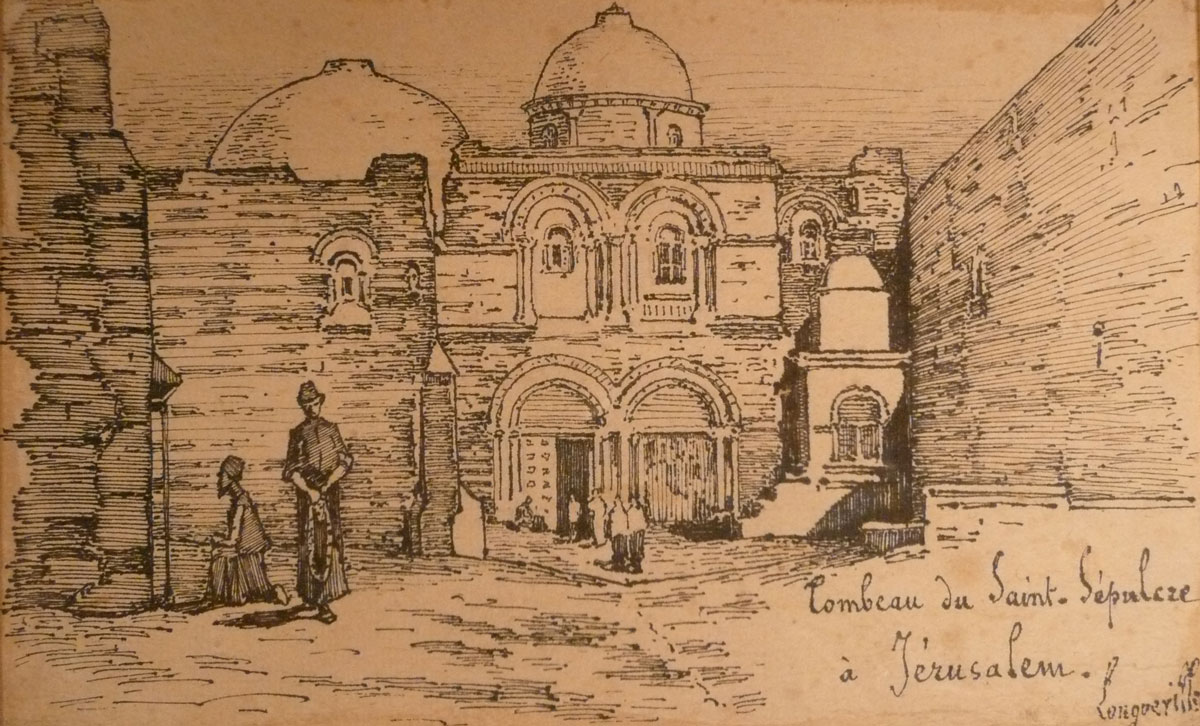 Tombeau du Saint-Sépulcre
à Jérusalem.